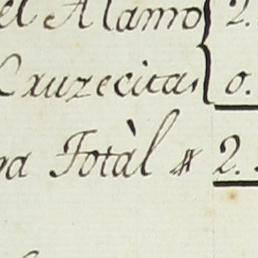 el Alamo 2.
Cruzecitas 0.
pa Totàl # 2.